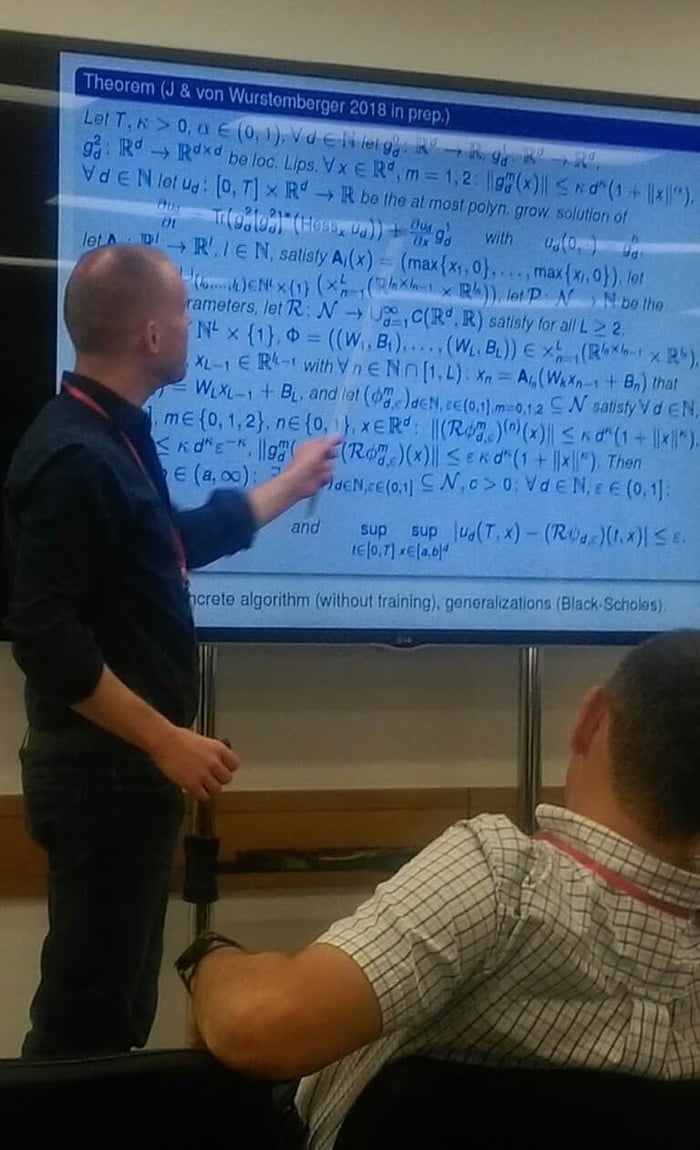 Theorem (J & von Wurstemberger 2018 in prep.)
Let T, κ > 0, α ∈ (0, 1), ∀ d ∈ ℕ let g_d^0 : ℝ^d → ℝ, g_d^1 : ℝ^d → ℝ^d,
g_d^2 : ℝ^d → ℝ^{d×d} be loc. Lips. ∀ x ∈ ℝ^d, m = 1, 2 : ‖g_d^m(x)‖ ≤ κ d^κ(1 + ‖x‖^α).
∀ d ∈ ℕ let u_d : [0, T] × ℝ^d → ℝ be the at most polyn. grow. solution of
∂u_d/∂t = Tr(g_d^2[g_d^2]*(Hess_x u_d)) + ∂u_d/∂x g_d^1 with u_d(0, ·) = g_d^0.
let → ℝ^l, l ∈ ℕ, satisfy A_l(x) = (max{x_1, 0}, . . . , max{x_l, 0}), let
(×_{n=1}^L (ℝ^{l_n×l_{n−1}} × ℝ^{l_n})), let P : N → ℕ be the
rameters, let R : N → ∪_{d=1}^∞ C(ℝ^d, ℝ) satisfy for all L ≥ 2,
ℕ^L × {1}, Φ = ((W_1, B_1), . . . , (W_L, B_L)) ∈ ×_{n=1}^L (ℝ^{l_n×l_{n−1}} × ℝ^{l_n}),
x_{L−1} ∈ ℝ^{l_{L−1}} with ∀ n ∈ ℕ ∩ [1, L) : x_n = A_{l_n}(W_n x_{n−1} + B_n) that
= W_L x_{L−1} + B_L, and let (φ_{d,ε}^m)_{d∈ℕ,ε∈(0,1],m=0,1,2} ⊆ N satisfy ∀ d ∈ ℕ,
m ∈ {0, 1, 2}, n ∈ {0, 1}, x ∈ ℝ^d : ‖(Rφ_{d,ε}^m)^{(n)}(x)‖ ≤ κ d^κ(1 + ‖x‖^κ),
≤ κ d^κ ε^{−κ}, ‖g_d^m( (Rφ_{d,ε}^m)(x)‖ ≤ ε κ d^κ(1 + ‖x‖^κ). Then
∈ (a, ∞) : )_{d∈ℕ,ε∈(0,1]} ⊆ N, c > 0 : ∀ d ∈ ℕ, ε ∈ (0, 1] :
and sup_{t∈[0,T]} sup_{x∈[a,b]^d} |u_d(T, x) − (Rψ_{d,ε})(t, x)| ≤ ε.
ncrete algorithm (without training), generalizations (Black-Scholes).
LG